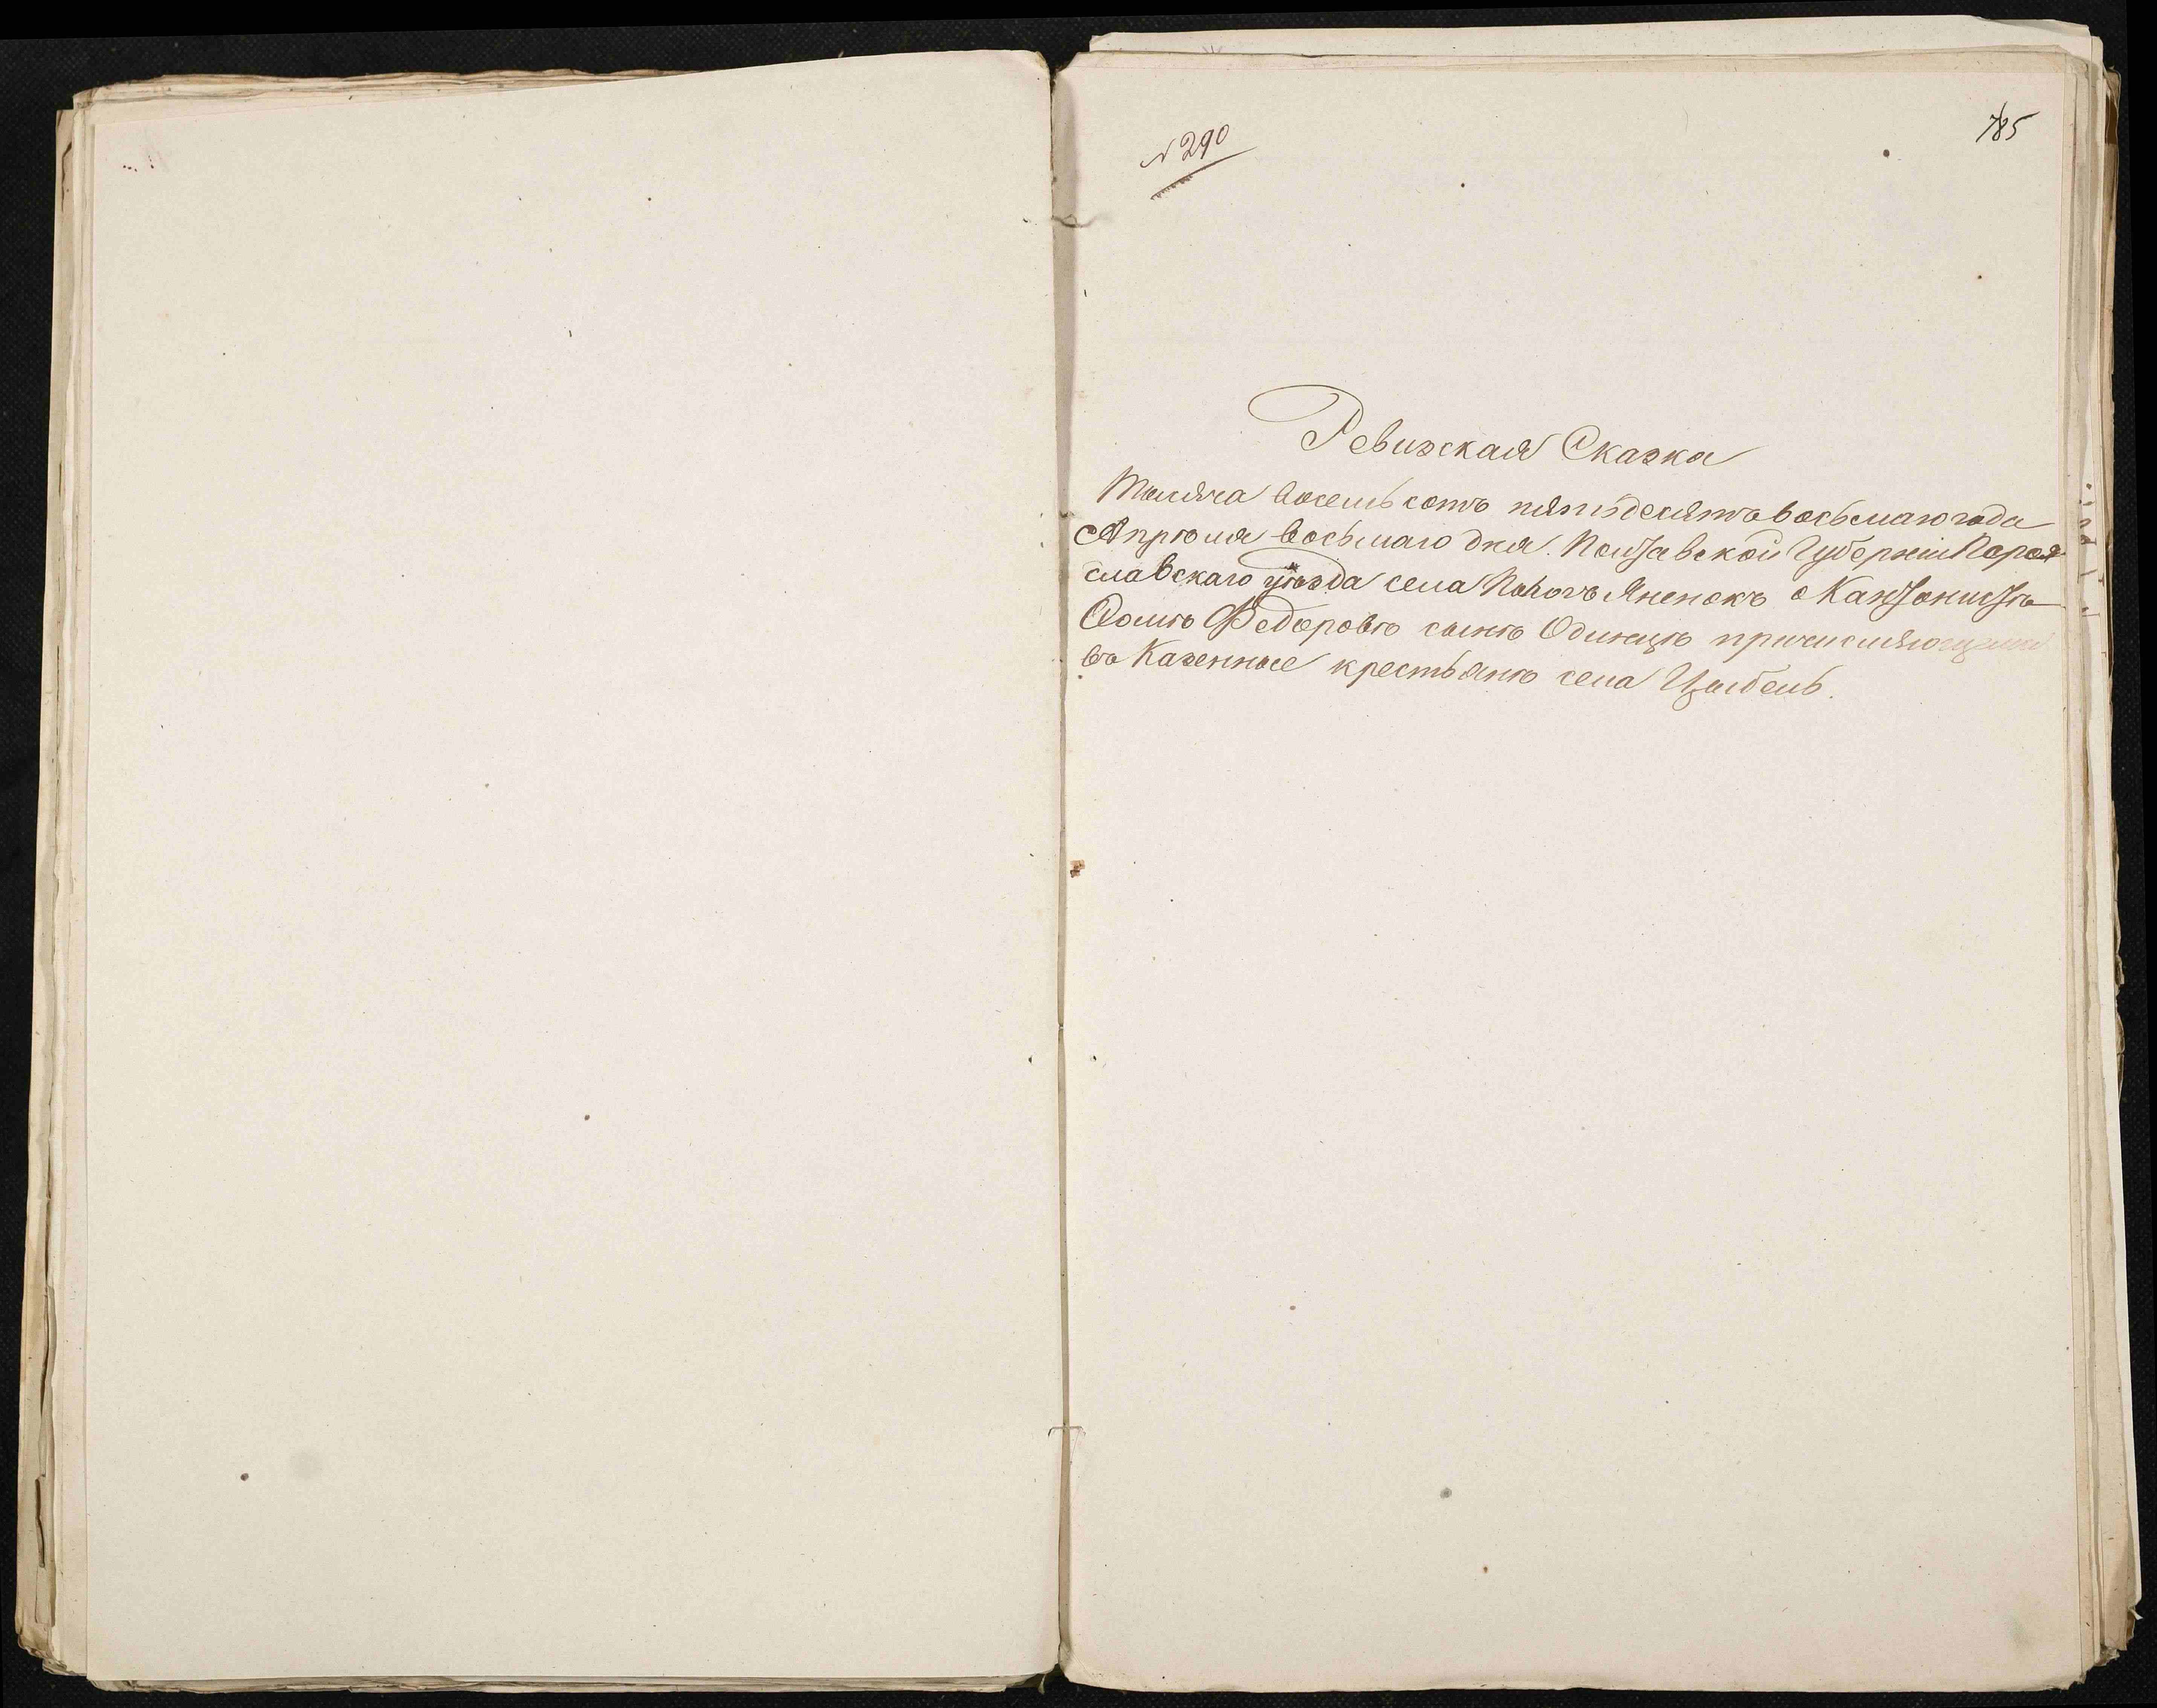 № 290
785
Ревизская Сказка
Тысяча восемь сотъ пятьдесятъ восьмаго года
Апрѣля восьмаго дня. Полтавской Губерніи Перея-
славскаго уѣзда села Яненокъ о Кантонистѣ
Федоровѣ сынѣ Одинцѣ причисляющемся
въ Казенные крестьянѣ села Цыбель.